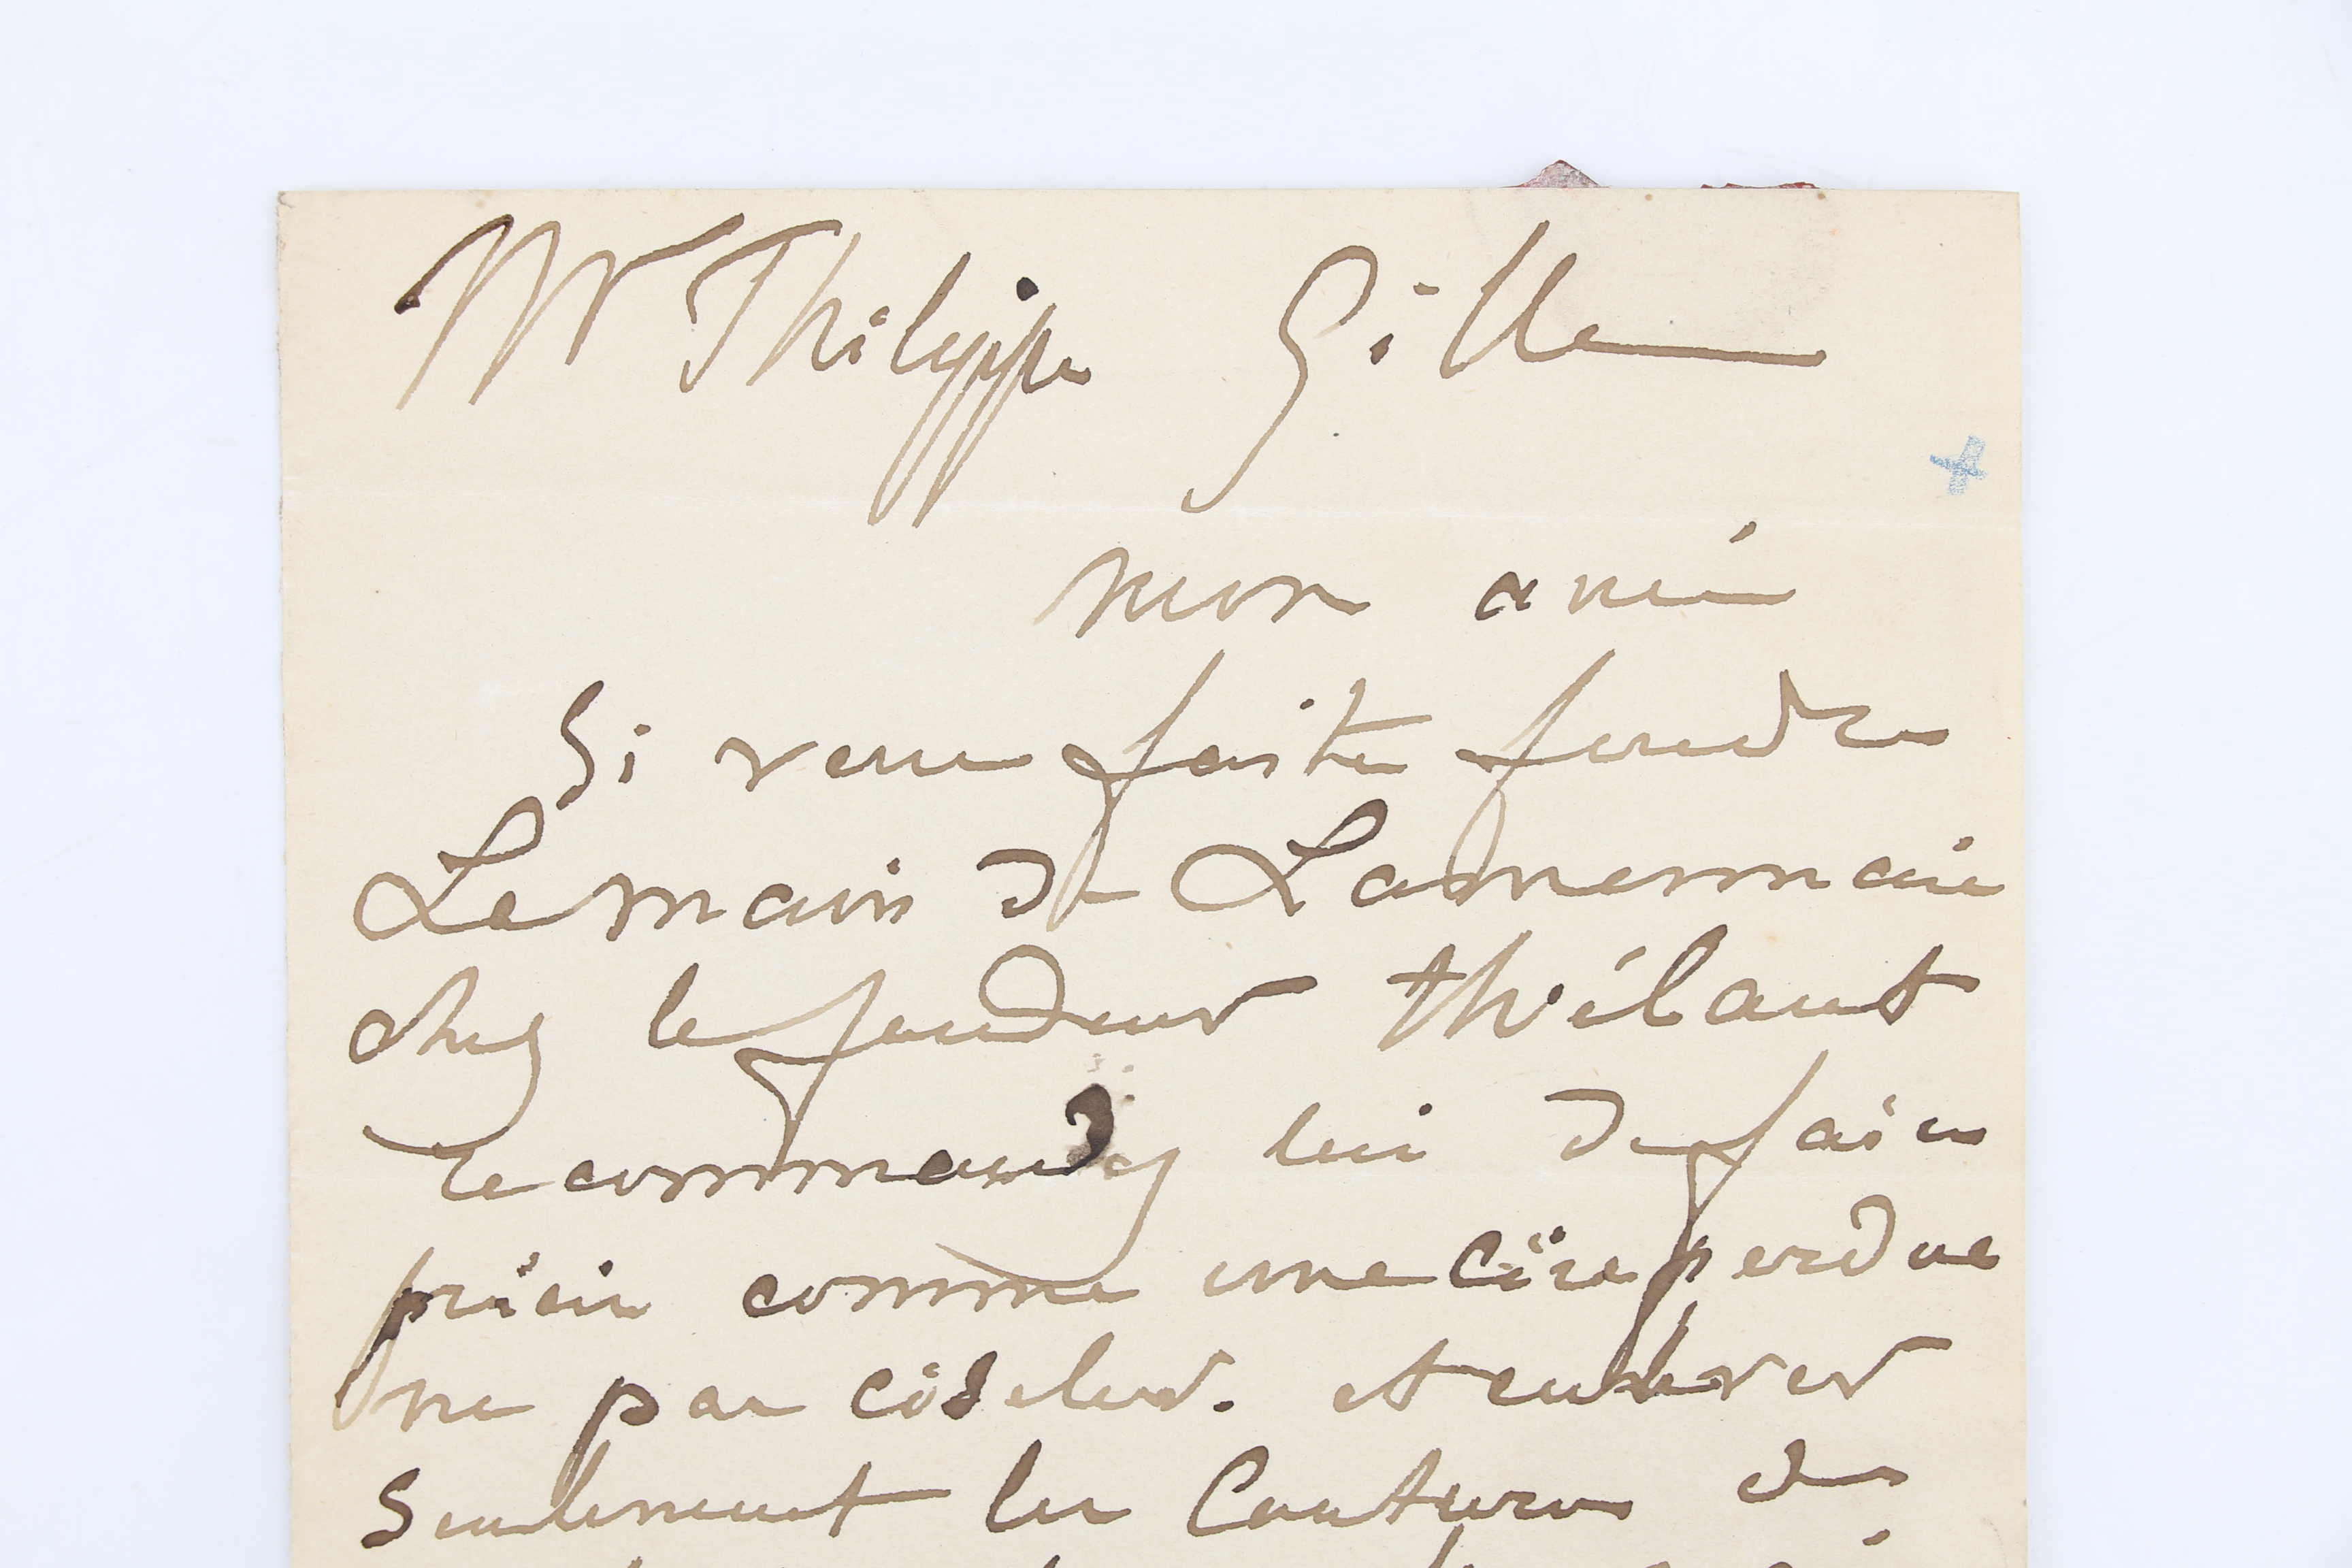 Mr Philippe Gille
mon ami
Si vous faites fondre
La main de Lamermaie
chez le fondeur thiébaut
recommandez lui de faire
précis comme une cire perdue
ne pas ciseler. et enlever
seulement les coutures de